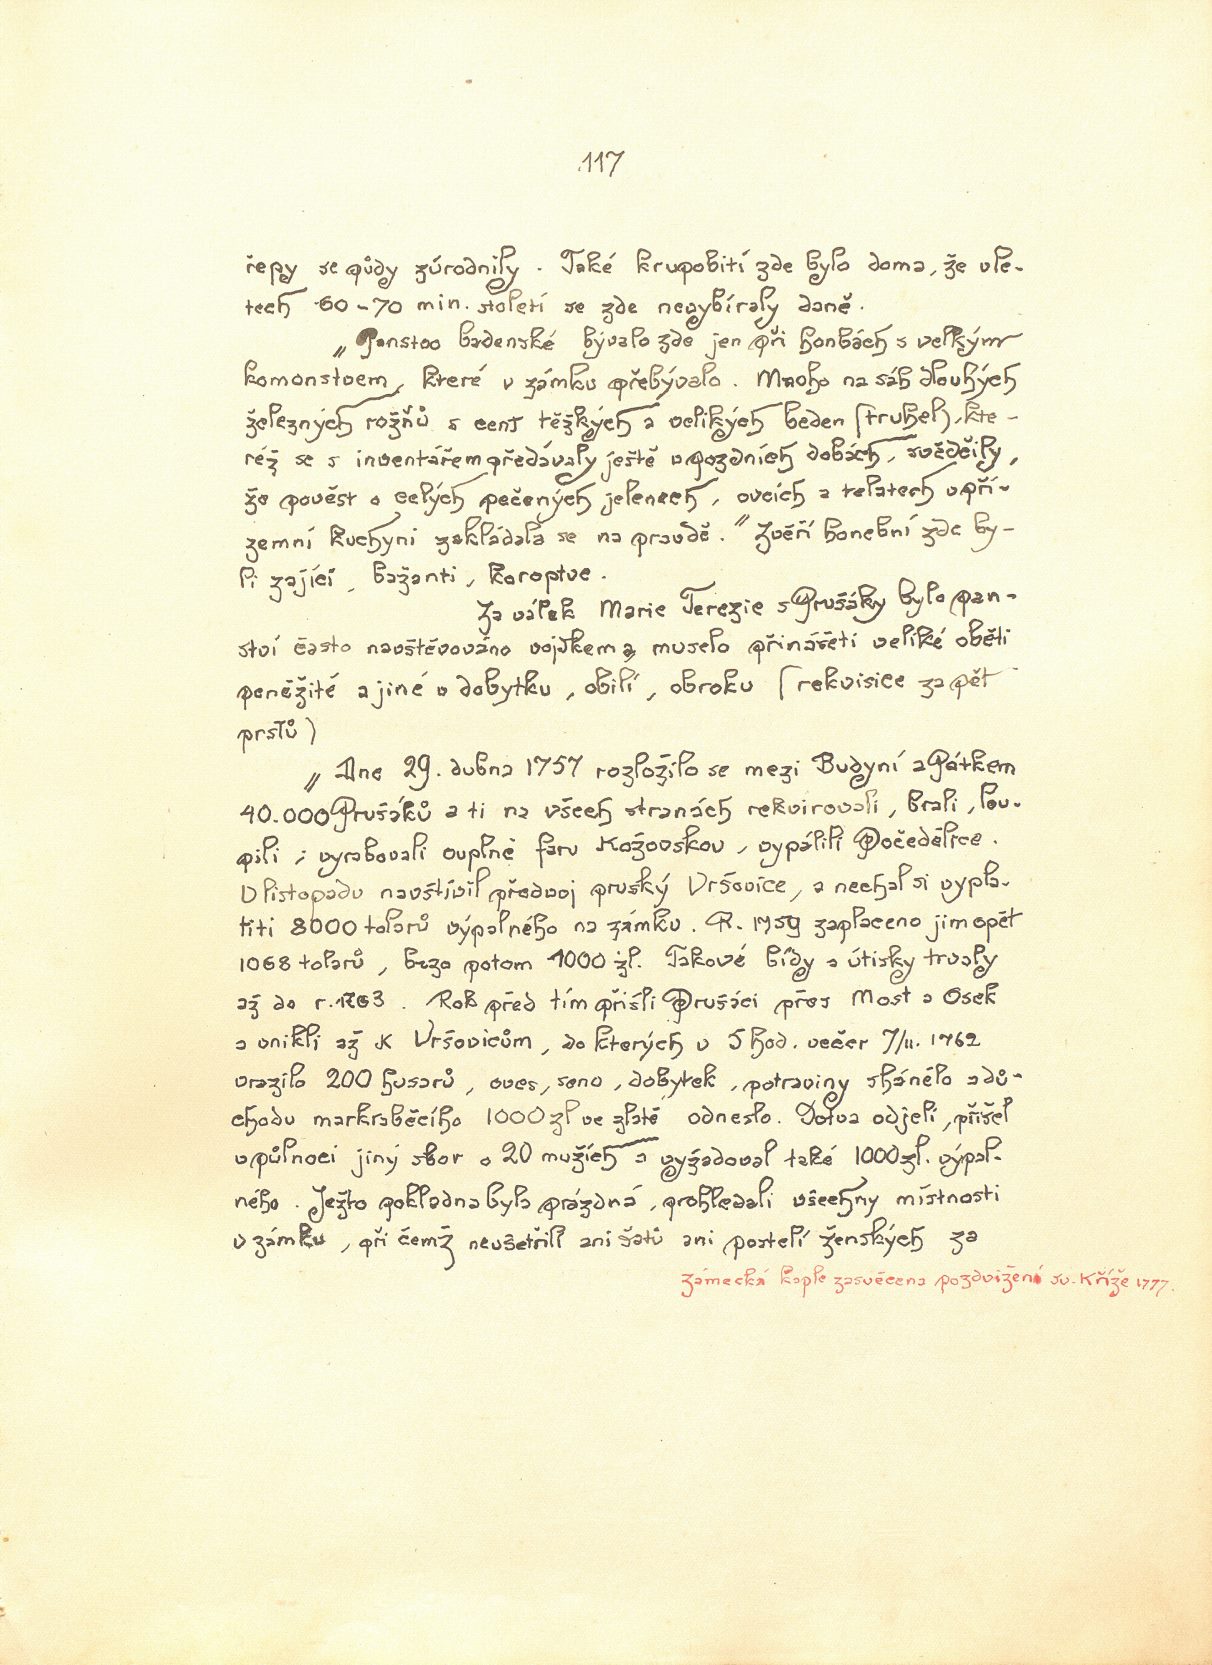 117
řepy se půdy zúrodnily. Také krupobití zde bylo doma, že vle-
tech 60-70 min. století se zde nevybíraly daně.
„Panstvo badenské bývalo zde jen při honbách s velkým
komonstvem, které v zámku přebývalo. Mnoho na sáh dlouhých
železných rožňů s cent těžkých a velikých beden (truhel), kte-
réž se s inventářem předávaly ještě v pozdních dobách, svědčily,
že pověst o celých pečených jelenech, ovcích a telatech v pří-
zemní kuchyni zakládala se na pravdě." Zvěří honební zde by-
li zajíci, bažanti, koroptve.
Za válek Marie Terezie s Prušáky bylo pan-
ství často navštěvováno vojskem a muselo přinášeti veliké oběti
peněžité a jiné v dobytku, obilí, obroku (rekvisice za pět
prstů)
„Dne 29. dubna 1757 rozložilo se mezi Budyní a Pátkem
40.000 Prušáků a ti na všech stranách rekvirovali, brali, lou-
pili; vyrabovali ouplně faru Kožovskou, vypálili Počedělice.
V listopadu navštívil předvoj pruský Vršovice, a nechal si vypla-
titi 8000 tolarů výpalného na zámku. R. 1759 zaplaceno jim opět
1068 tolarů, brzo potom 4000 zl. Takové bídy a útisky trvaly
až do r. 1763. Rok před tím přišli Prušáci přes Most a Osek
a vnikli až k Vršovicům, do kterých v 5 hod. večer 7/11. 1762
vrazilo 200 husarů, oves, seno, dobytek, potraviny sháněla a dů-
chodu markraběcího 1000 zl ve zlatě odneslo. Sotva odjeli, přišel
v půlnoci jiný sbor o 20 mužích a vyžadoval také 1000 zl. výpal-
ného. Ježto pokladna byla prázdná, prohledali všechny místnosti
v zámku, při čemž neušetřili ani šatů ani postelí ženských za
zámecká kaple zasvěcena pozdvižení sv. Kříže 1777.